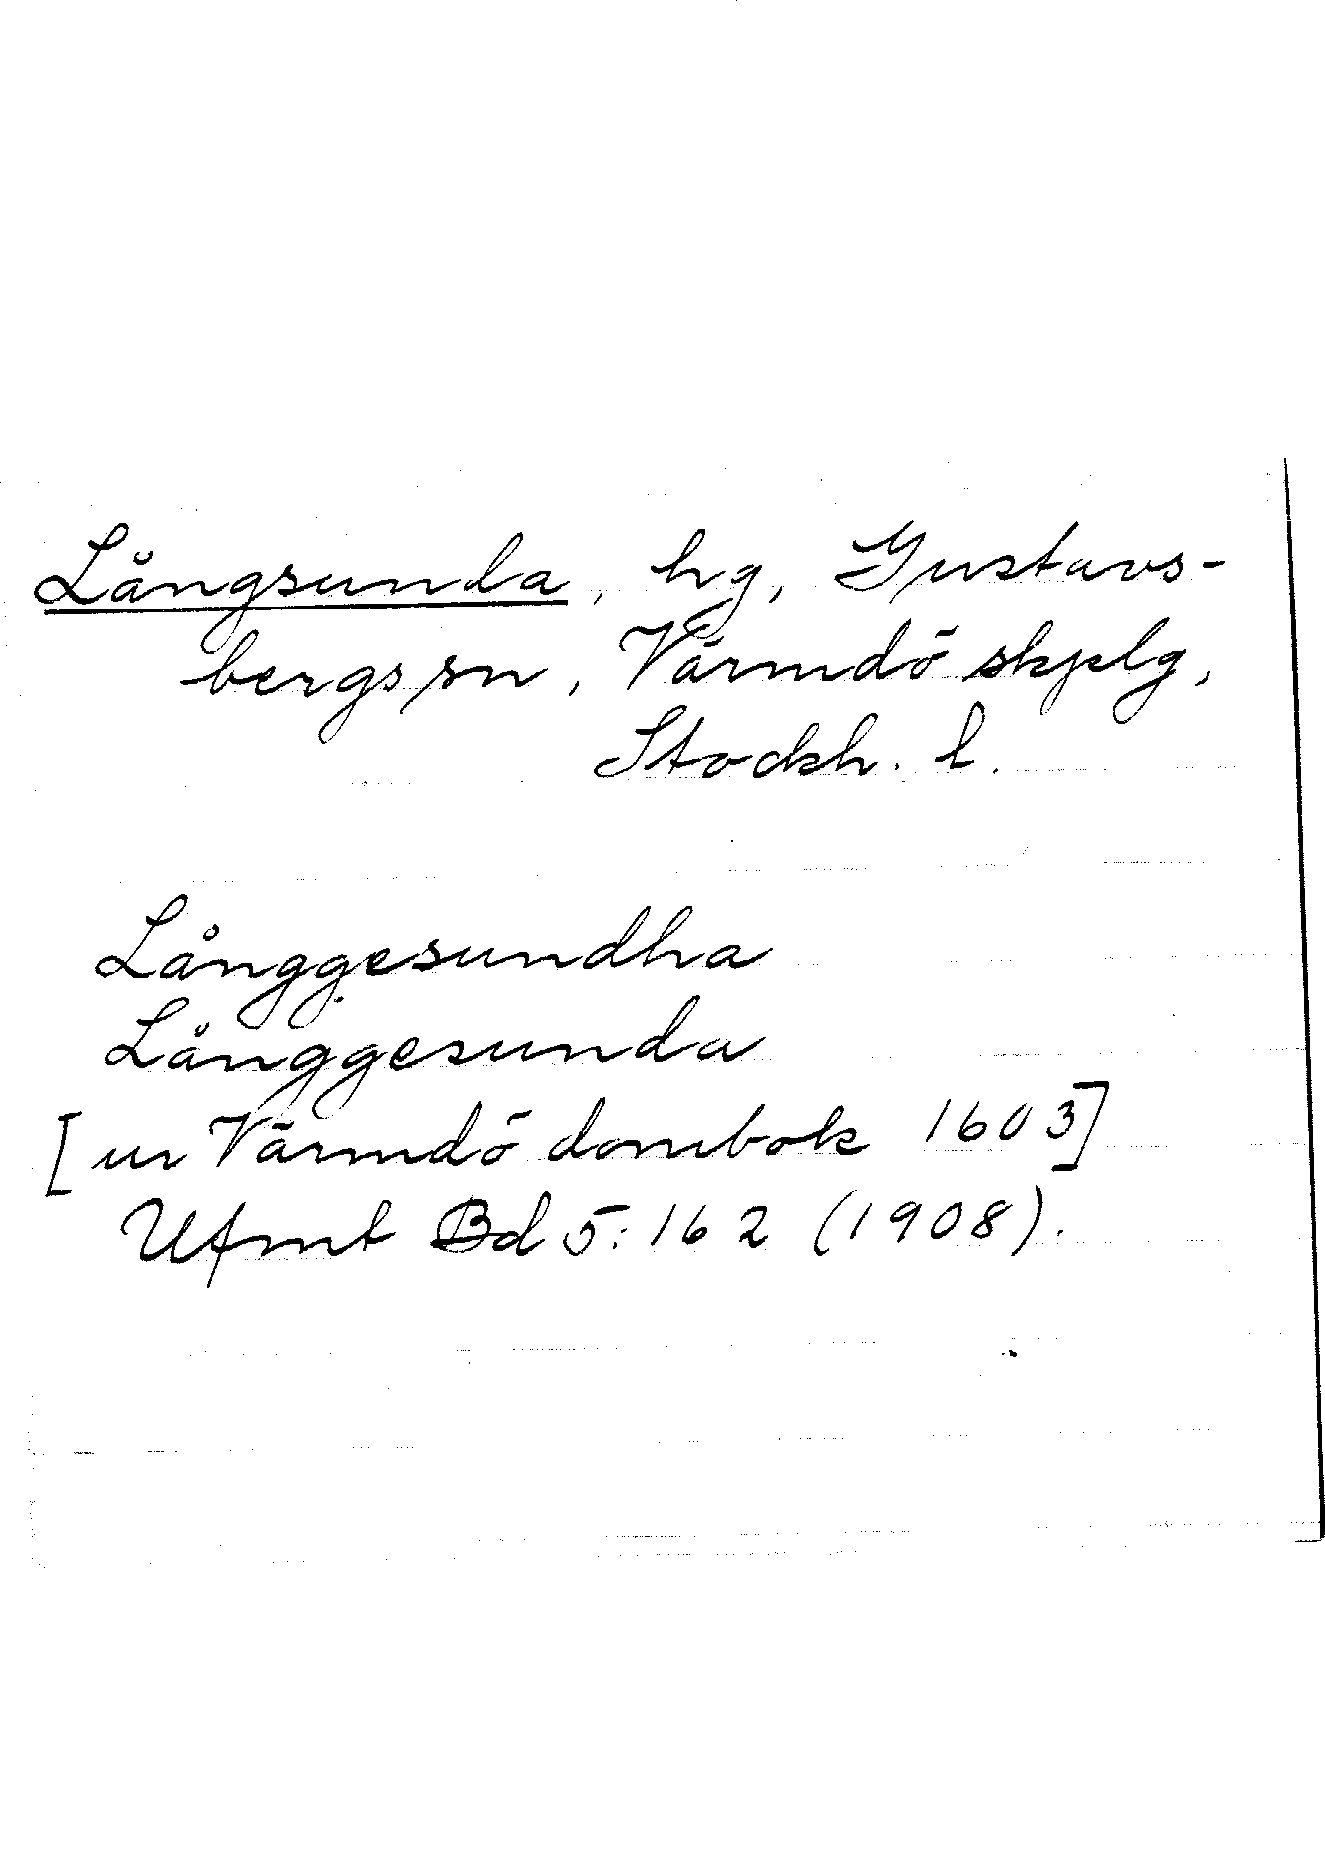 Långsunda, hg, Gustavs-
bergs sn, Värmdö skplg,
Stockh. l.
Långgesundha
Långgesunda
[ur Värmdö dombok 1603]
Ufmt Bd 5:162 (1908).